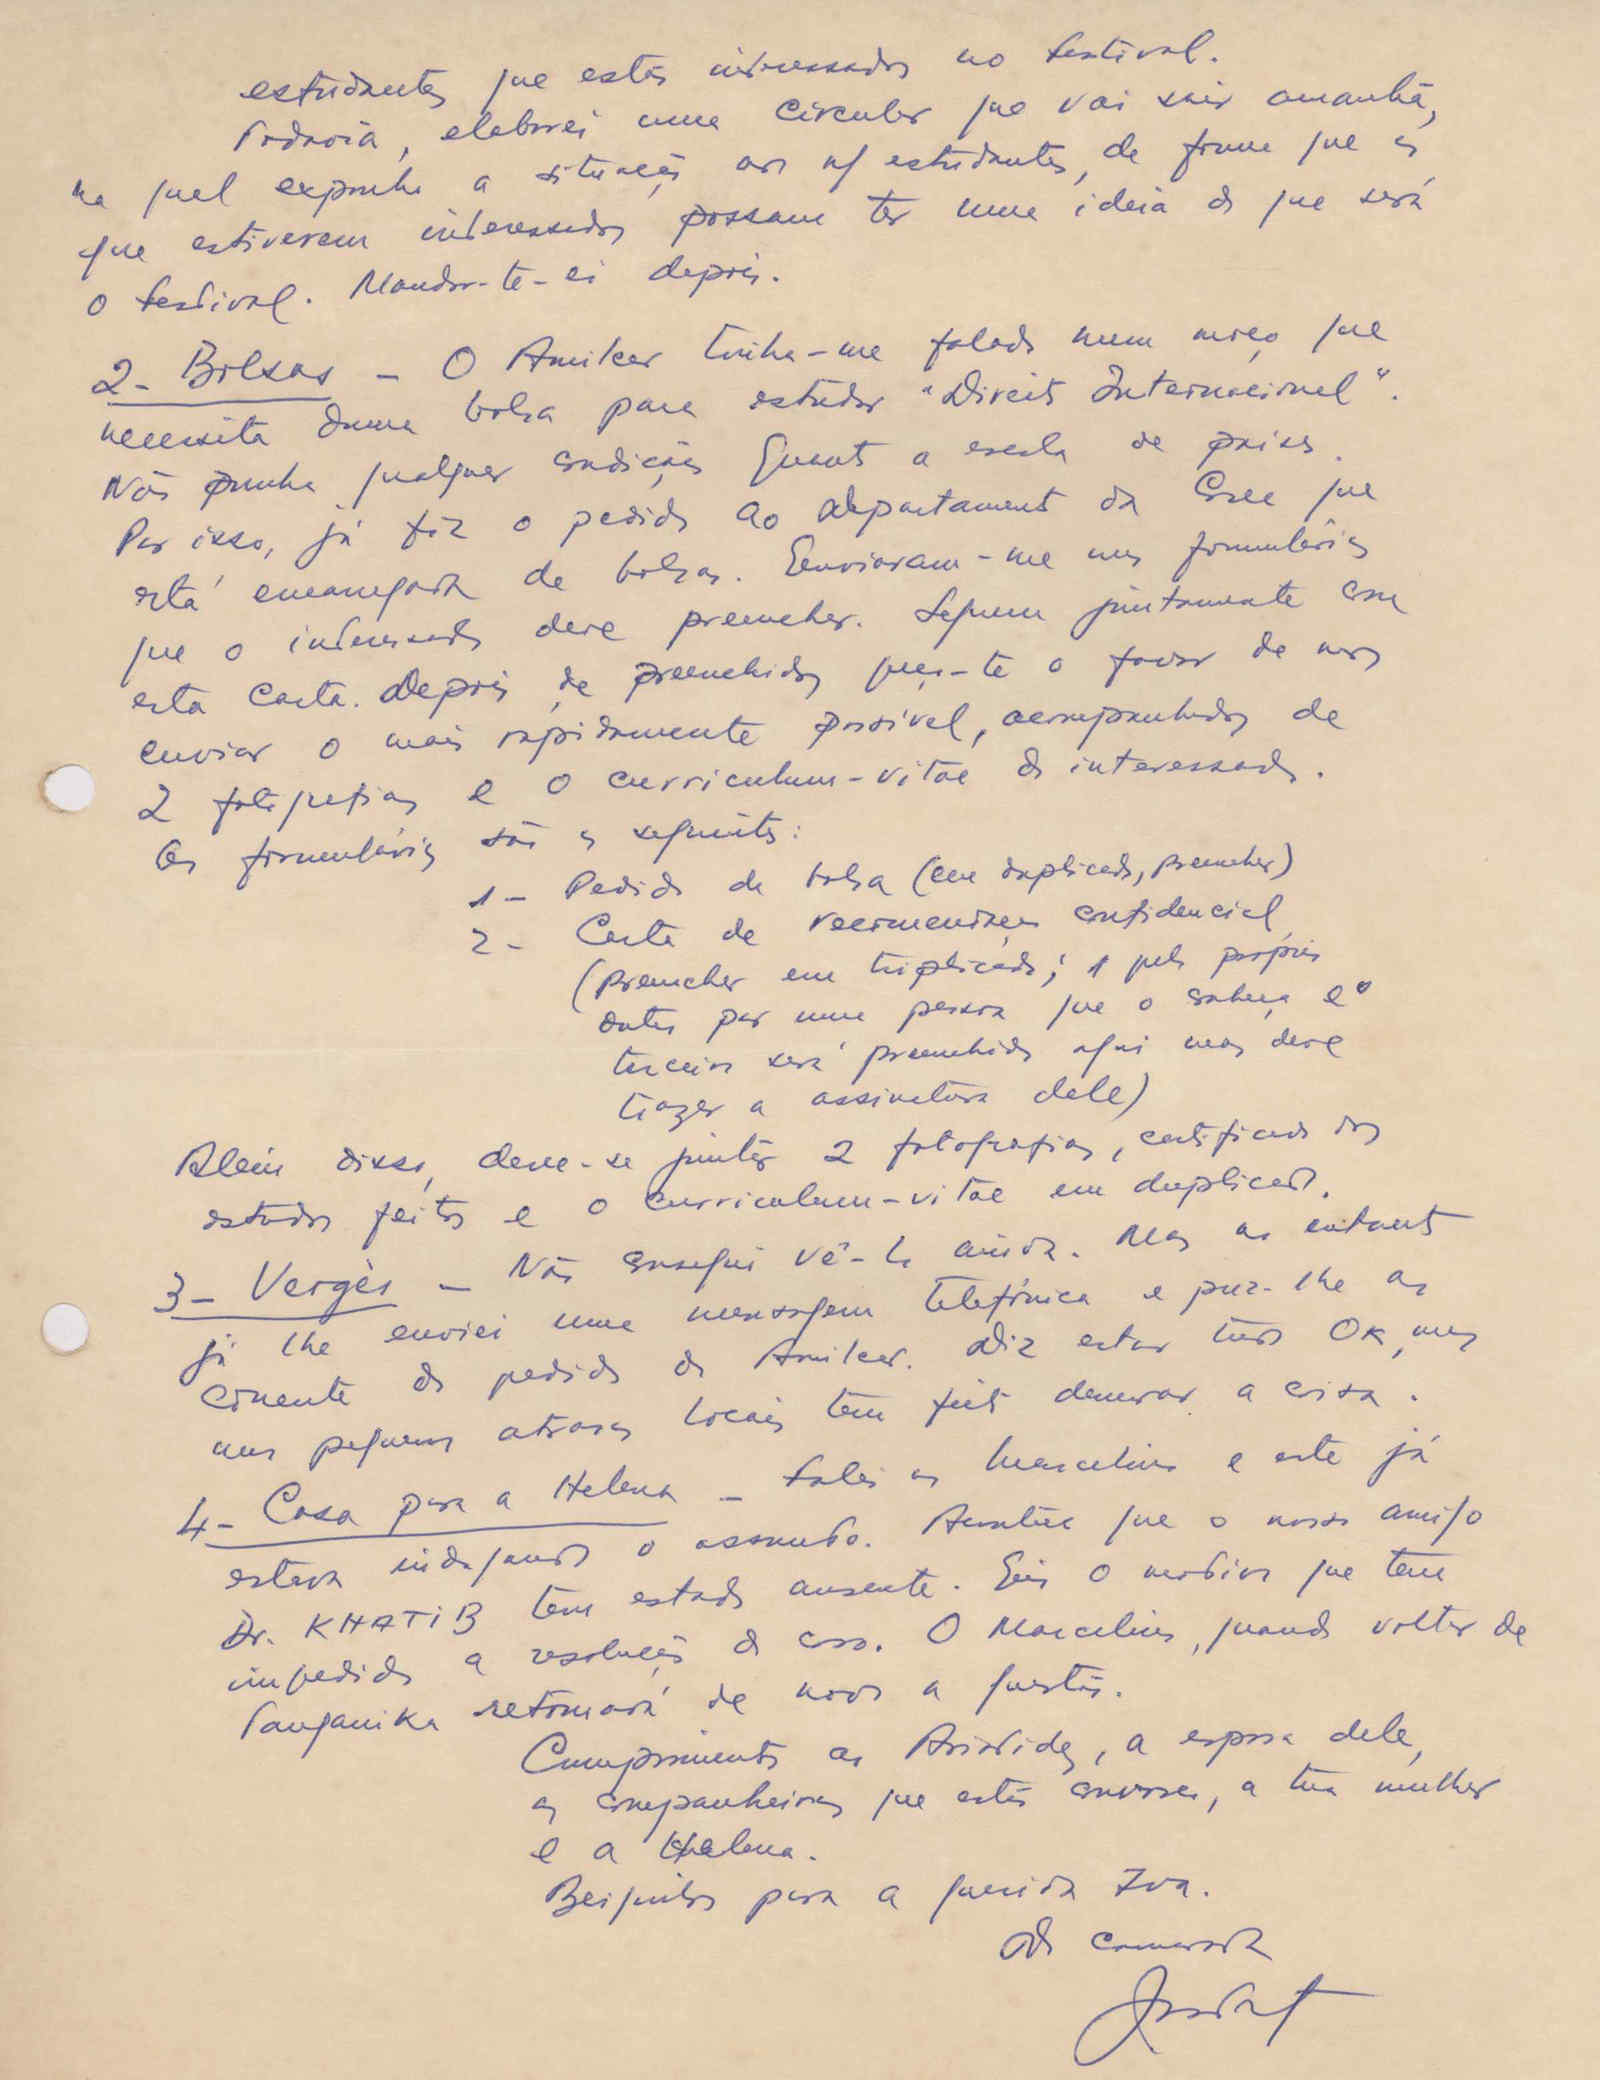 estudantes que estão interessados no festival.
Todavia, elaborei uma circular que vai sair amanhã,
na qual exponho a situação aos n/ estudantes, de forma que os
que estiverem interessados possam ter uma ideia do que será
o festival. Mandar-te-ei depois.
2- Bolsas - O Amilcar tinha-me falado num moço que
necessita duma bolsa para estudar "Direito Internacional".
Não punha qualquer condição quanto a escola de países.
Por isso, já fiz o pedido ao departamento da que
está encarregado de bolsas. Enviaram-me uns formulários
que o interessado deve preencher. Seguem juntamente com
esta carta. Depois de preenchidos peço-te o favor de nos
enviar o mais rapidamente possível, acompanhados de
2 fotografias e o curriculum-vitae do interessado.
Os formulários são os seguintes:
1- Pedido de bolsa (em duplicado, preencher)
2- Carta de recomendação confidencial
(preencher em triplicado; 1 pelo próprio
outro por uma pessoa que o conheça e o
terceiro será preenchido aqui mas deve
trazer a assinatura dele)
Além disso, deve-se juntar 2 fotografias, certificado dos
estudos feitos e o curriculum-vitae em duplicado.
3- Vergès - Não consegui vê-lo ainda. Mas no entanto
já lhe enviei uma mensagem telefónica e puz-lhe ao
corrente do pedido do Amilcar. Diz estar tudo OK, mas
uns pequenos atrasos locais tem feito demorar a coisa.
4- Casa para a Helena - Falei ao Marcelino e este já
estava indagando o assunto. Acontece que o nosso amigo
Dr. KHATIB tem estado ausente. Eis o motivo que tem
impedido a resolução do caso. O Marcelino, quando voltar de
Tanganika retomará de novo a questão.
Cumprimentos ao Aristides, a esposa dele,
os companheiros que estão connosco, a tua mulher
e a Helena.
Beijinhos para a querida Iva.
Do camarada